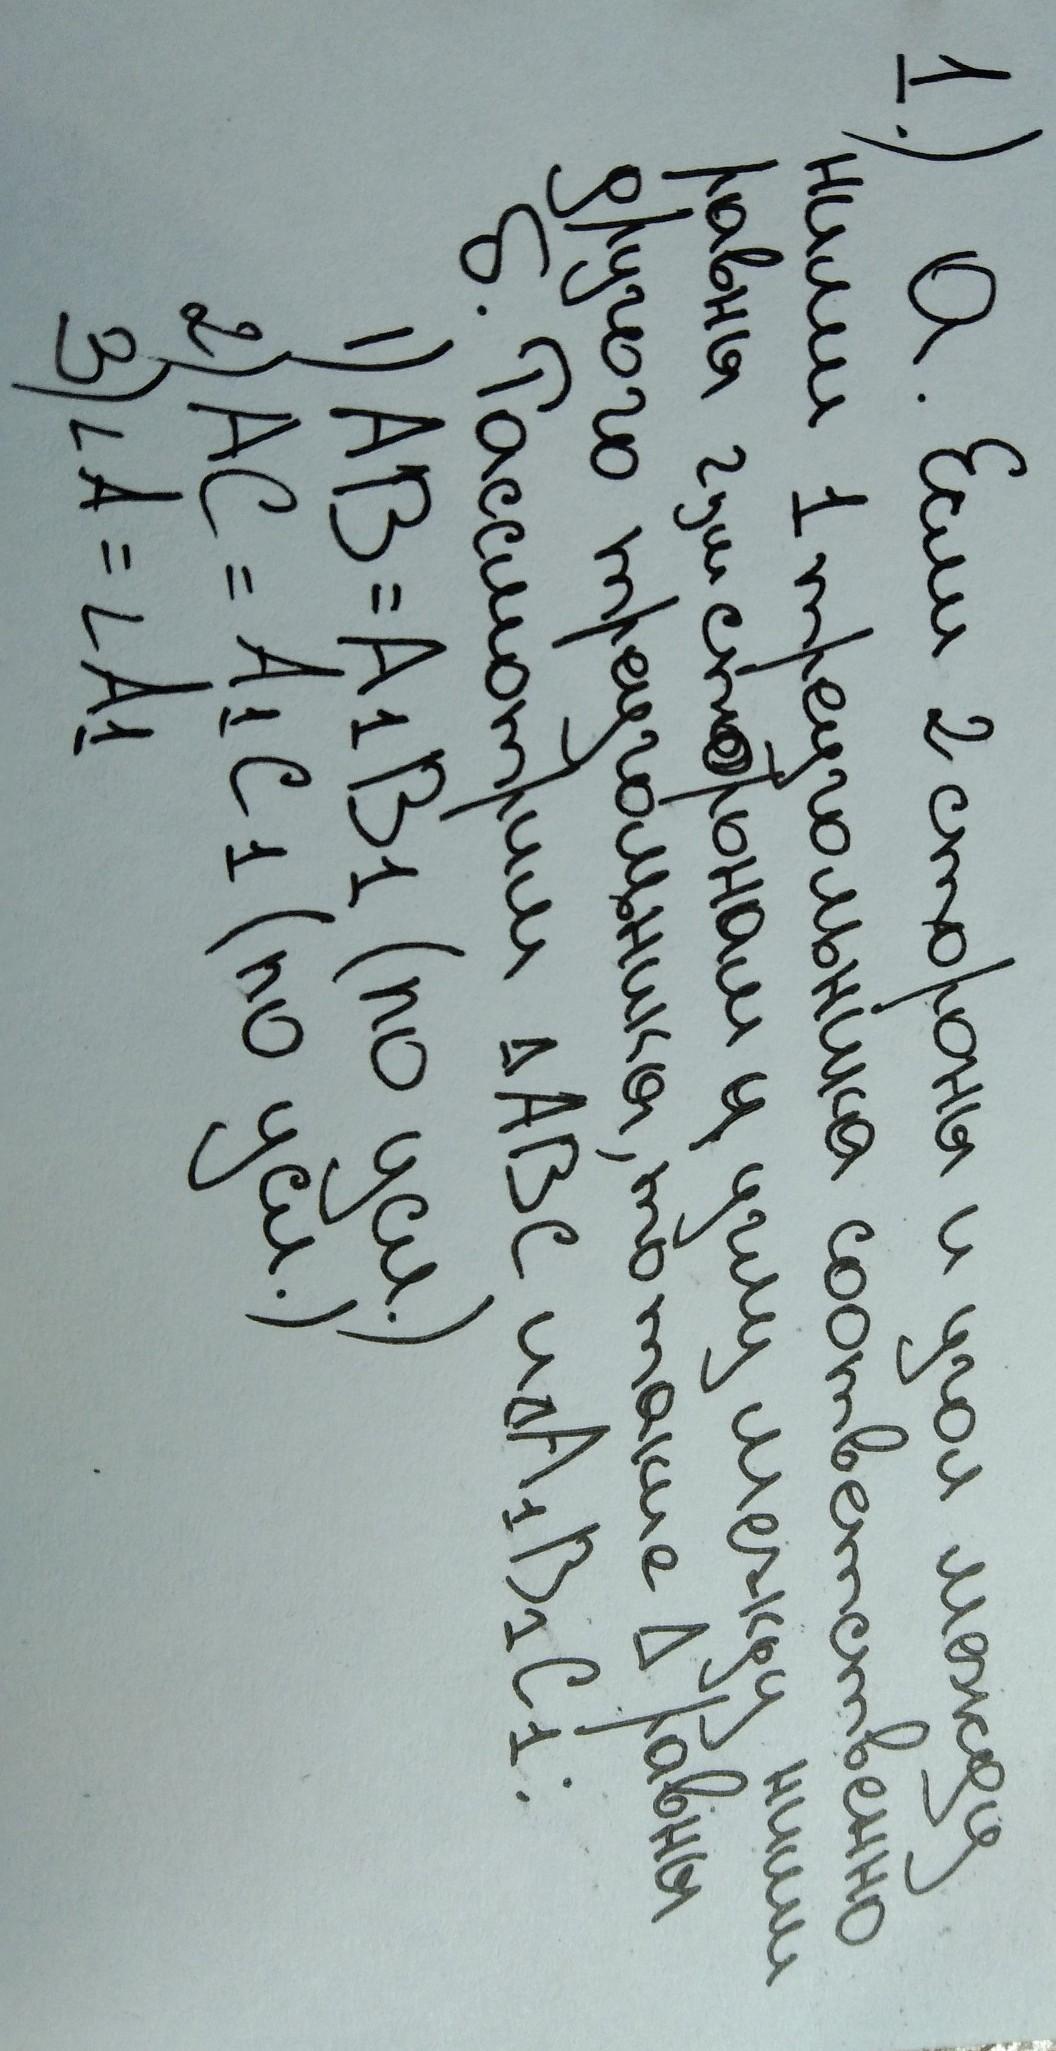 1.) а. Если 2 стороны и угол между
ними 1 треугольника соответственно
равны сторонам и углу между ними
другого треугольника, то такие Δ равны
б. Рассмотрим ΔABC и ΔA1B1C1:
1) AB = A1B1 (по усл.)
2) AC = A1C1 (по усл.)
3) ∠A = ∠A1